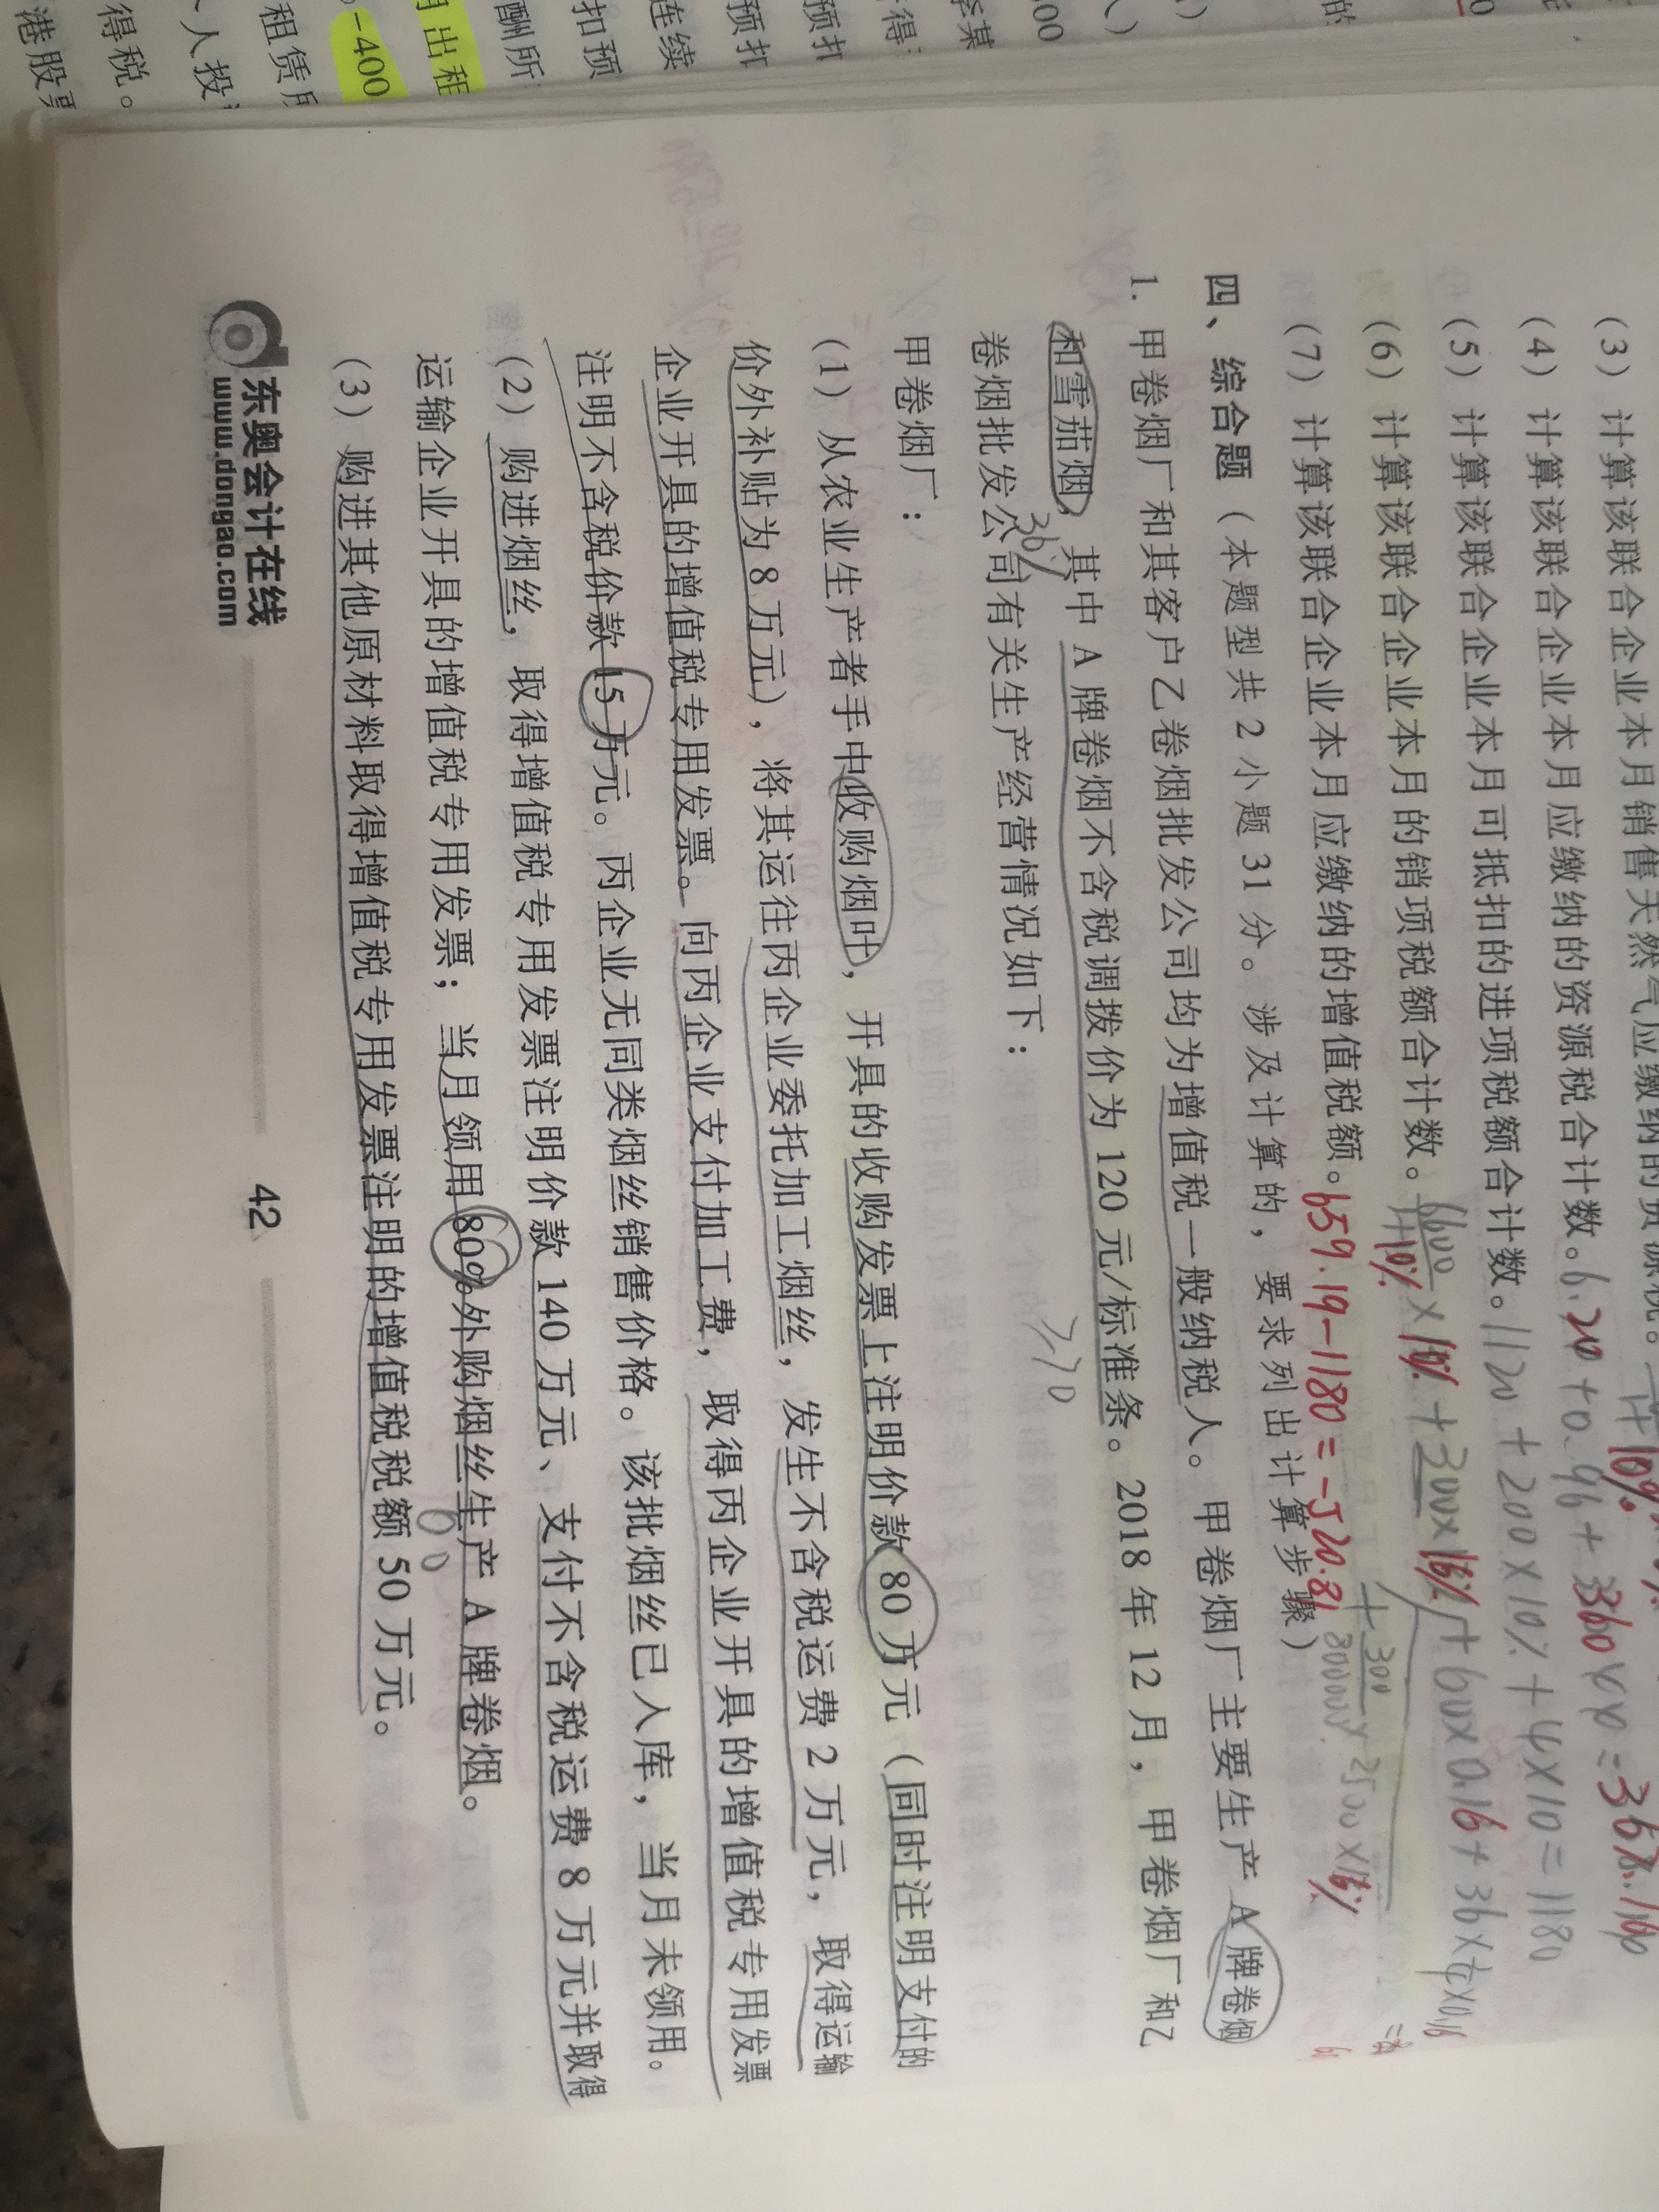 港股票
得税。
人投
租赁
-400
出租
酬所
扣预
连续
预扣
预扣
得
李某
的
(3) 计算该联合企业本月销售天然气应缴纳的资源税。
(4) 计算该联合企业本月应缴纳的资源税合计数。
(5) 计算该联合企业本月可抵扣的进项税额合计数。1120+200×10%+4×10=1180
(6) 计算该联合企业本月的销项税额合计数。
(7) 计算该联合企业本月应缴纳的增值税额。659.19-1180=-520.81
四、综合题(本题型共 2 小题 31 分。涉及计算的，要求列出计算步骤)
1. 甲卷烟厂和其客户乙卷烟批发公司均为增值税一般纳税人。甲卷烟厂主要生产 A 牌卷烟
和雪茄烟，其中 A 牌卷烟不含税调拨价为 120 元/标准条。2018 年 12 月，甲卷烟厂和乙
36%
≥70
卷烟批发公司有关生产经营情况如下：
甲卷烟厂：
(1) 从农业生产者手中收购烟叶，开具的收购发票上注明价款 80 万元（同时注明支付的
价外补贴为 8 万元)，将其运往丙企业委托加工烟丝，发生不含税运费 2 万元，取得运输
企业开具的增值税专用发票。向丙企业支付加工费，取得丙企业开具的增值税专用发票
注明不含税价款 15 万元。丙企业无同类烟丝销售价格。该批烟丝已入库，当月未领用。
(2) 购进烟丝，取得增值税专用发票注明价款 140 万元、支付不含税运费 8 万元并取得
运输企业开具的增值税专用发票；当月领用 80%外购烟丝生产 A 牌卷烟。
(3) 购进其他原材料取得增值税专用发票注明的增值税税额 50 万元。
东奥会计在线
www.dongao.com
42